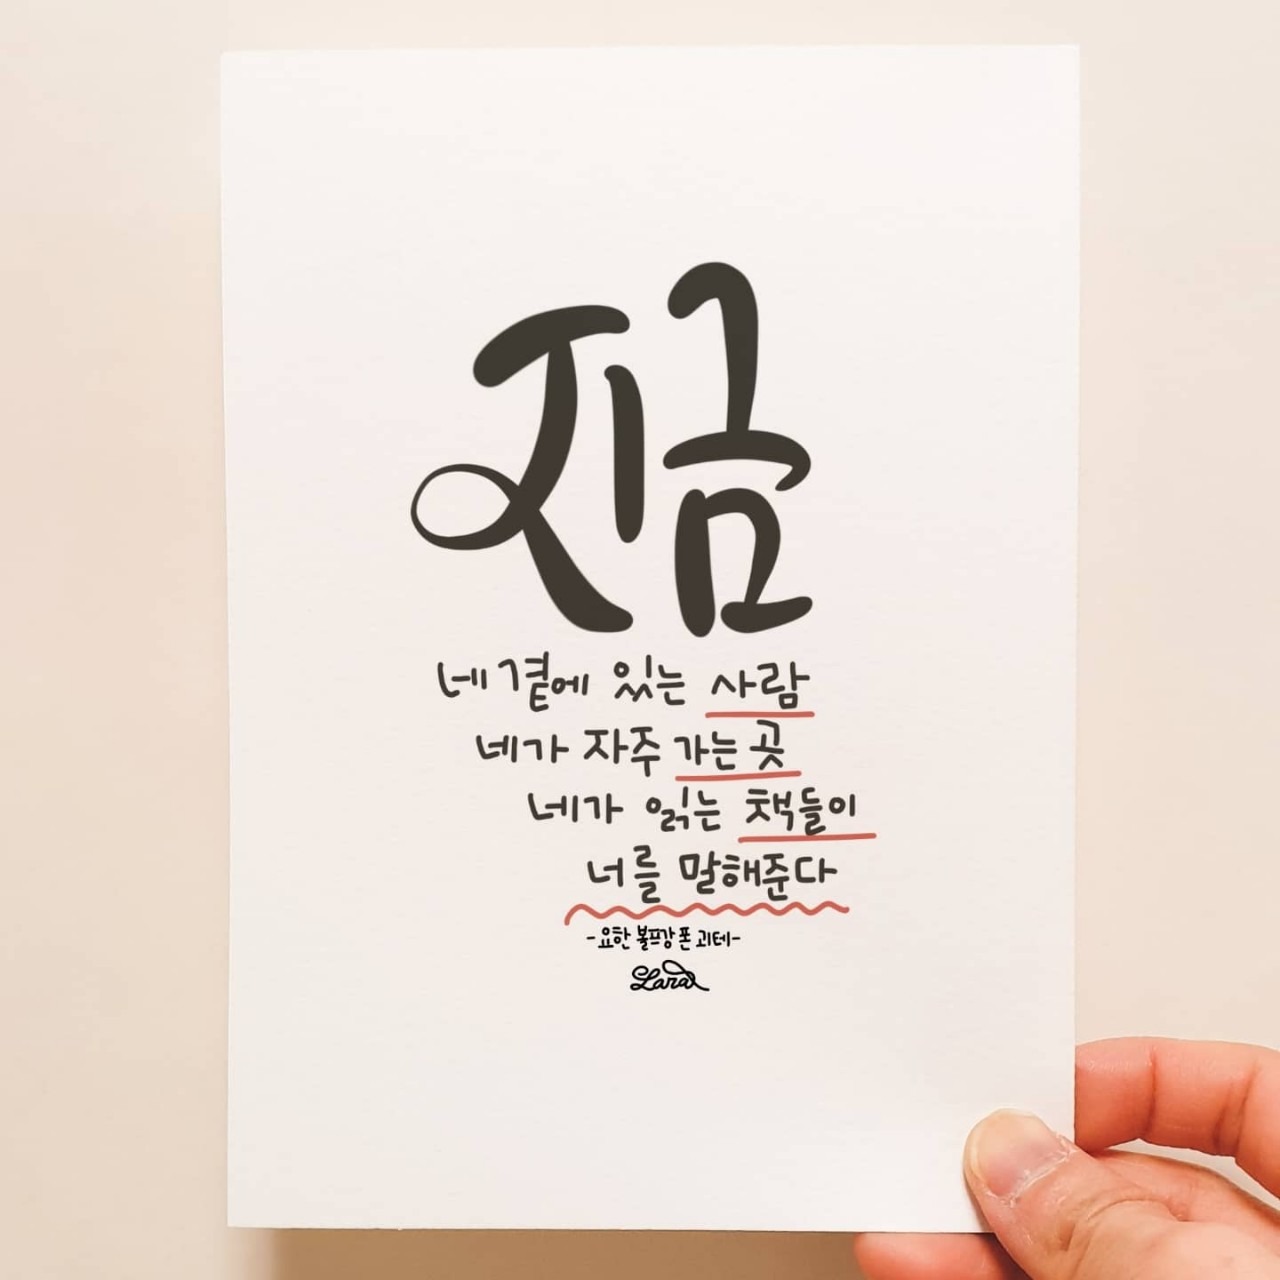 지금
네 곁에 있는 사람
네가 자주 가는 곳
네가 읽는 책들이
너를 말해준다
-요한 볼프강 폰 괴테-
Lara